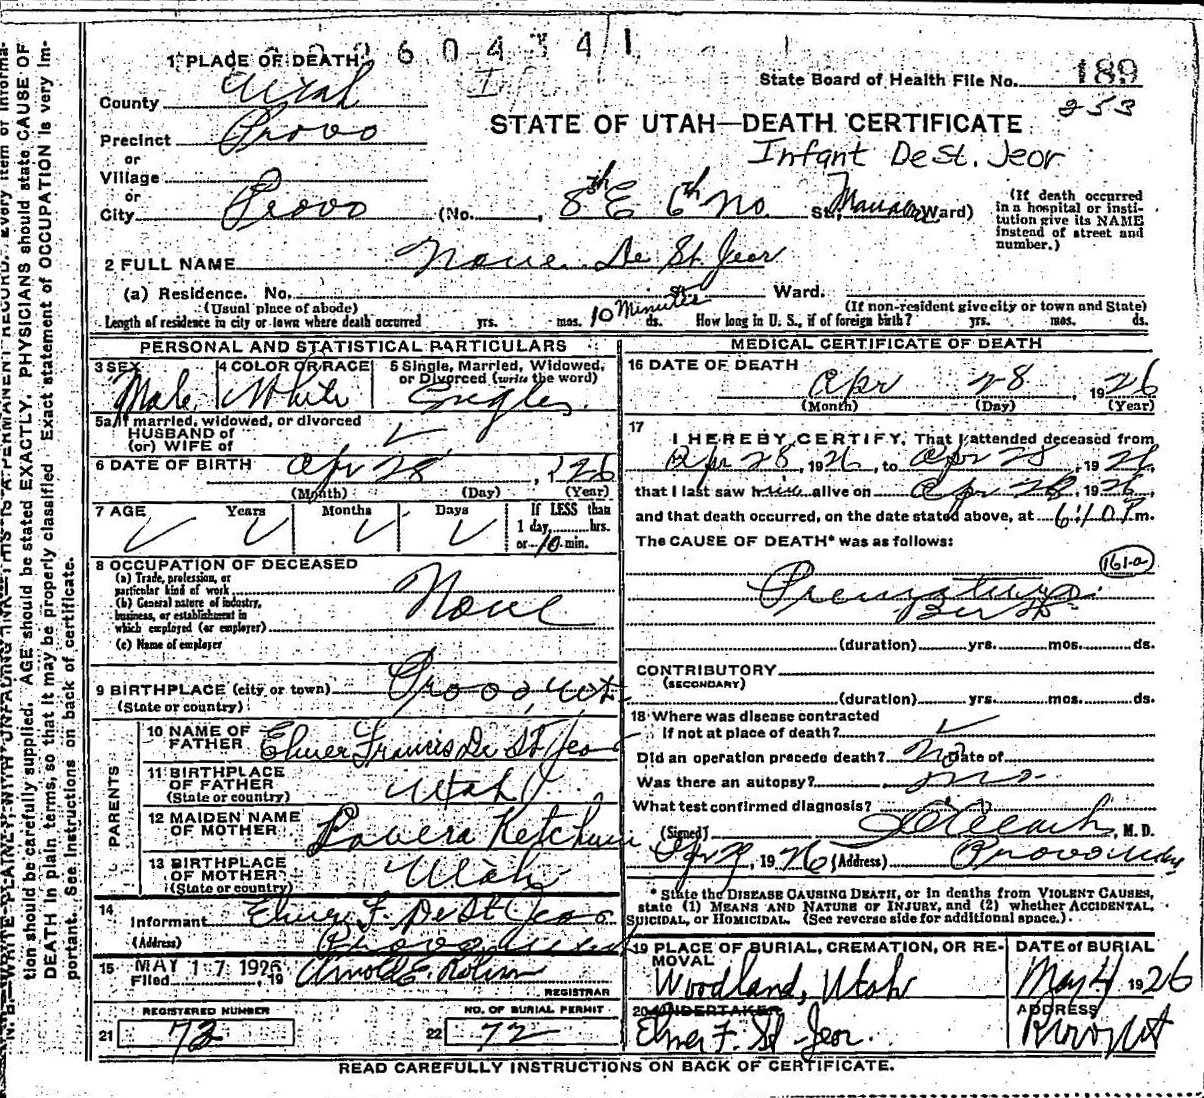 2 6 0 4 3 4 1
1 PLACE OF DEATH
State Board of Health File No. 189
County Utah
253
STATE OF UTAH—DEATH CERTIFICATE
Precinct Provo
Infant De St. Jeor
or
Village
or
City Provo (No. , 8th E 6th No. St., Ward)
(If death occurred in a hospital or insti-
tution give its NAME
instead of street and
number.)
2 FULL NAME None De St Jeor
(a) Residence. No. St. Ward.
(Usual place of abode) (If non-resident give city or town and State)
Length of residence in city or town where death occurred yrs. mos. 10 Minutes ds. How long in U. S., if of foreign birth? yrs. mos. ds.
PERSONAL AND STATISTICAL PARTICULARS
3 SEX 4 COLOR OR RACE 5 Single, Married, Widowed,
or Divorced (write the word)
Male White
5a If married, widowed, or divorced
HUSBAND of
(or) WIFE of
6 DATE OF BIRTH Apr 28, 1926
(Month) (Day) (Year)
7 AGE Years Months Days If LESS than
1 day, hrs.
or 10 min.
8 OCCUPATION OF DECEASED
(a) Trade, profession, or
particular kind of work
(b) General nature of industry,
business, or establishment in
which employed (or employer)
None
(c) Name of employer
9 BIRTHPLACE (city or town) Provo, Ut.
(State or country)
PARENTS
10 NAME OF
FATHER Elmer Francis De St Jeor
11 BIRTHPLACE
OF FATHER Utah
(State or country)
12 MAIDEN NAME
OF MOTHER Lavera Ketchum
13 BIRTHPLACE
OF MOTHER Utah
(State or country)
14
Informant Elmer F. De St Jeor
(Address) Provo
15 MAY 17 1926
Filed , 19
REGISTRAR
REGISTERED NUMBER NO. OF BURIAL PERMIT
21 72 22 72
MEDICAL CERTIFICATE OF DEATH
16 DATE OF DEATH
Apr 28 1926
(Month) (Day) (Year)
17
I HEREBY CERTIFY, That I attended deceased from
Apr 28, 1926, to Apr 28, 1926,
that I last saw him alive on Apr 28, 1926,
and that death occurred, on the date stated above, at 6:10 P m.
The CAUSE OF DEATH* was as follows:
161-a
Premature
Birth
(duration) yrs. mos. ds.
CONTRIBUTORY
(SECONDARY)
(duration) yrs. mos. ds.
18 Where was disease contracted
If not at place of death?
Did an operation precede death? No Date of
Was there an autopsy? no
What test confirmed diagnosis?
(Signed) , M. D.
Apr 29, 1926 (Address) Provo Utah
* State the DISEASE CAUSING DEATH, or in deaths from VIOLENT CAUSES,
state (1) MEANS AND NATURE OF INJURY, and (2) whether ACCIDENTAL,
SUICIDAL, or HOMICIDAL. (See reverse side for additional space.)
19 PLACE OF BURIAL, CREMATION, OR RE-
MOVAL
Woodland, Utah
DATE of BURIAL
May 4 1926
20 UNDERTAKER
Elmer F. St. Jeor.
ADDRESS
Provo Ut
READ CAREFULLY INSTRUCTIONS ON BACK OF CERTIFICATE.
N. B.—WRITE PLAINLY WITH UNFADING INK—THIS IS A PERMANENT RECORD. Every item of informa-
tion should be carefully supplied. AGE should be stated EXACTLY. PHYSICIANS should state CAUSE OF
DEATH in plain terms, so that it may be properly classified. Exact statement of OCCUPATION is very im-
portant. See instructions on back of certificate.